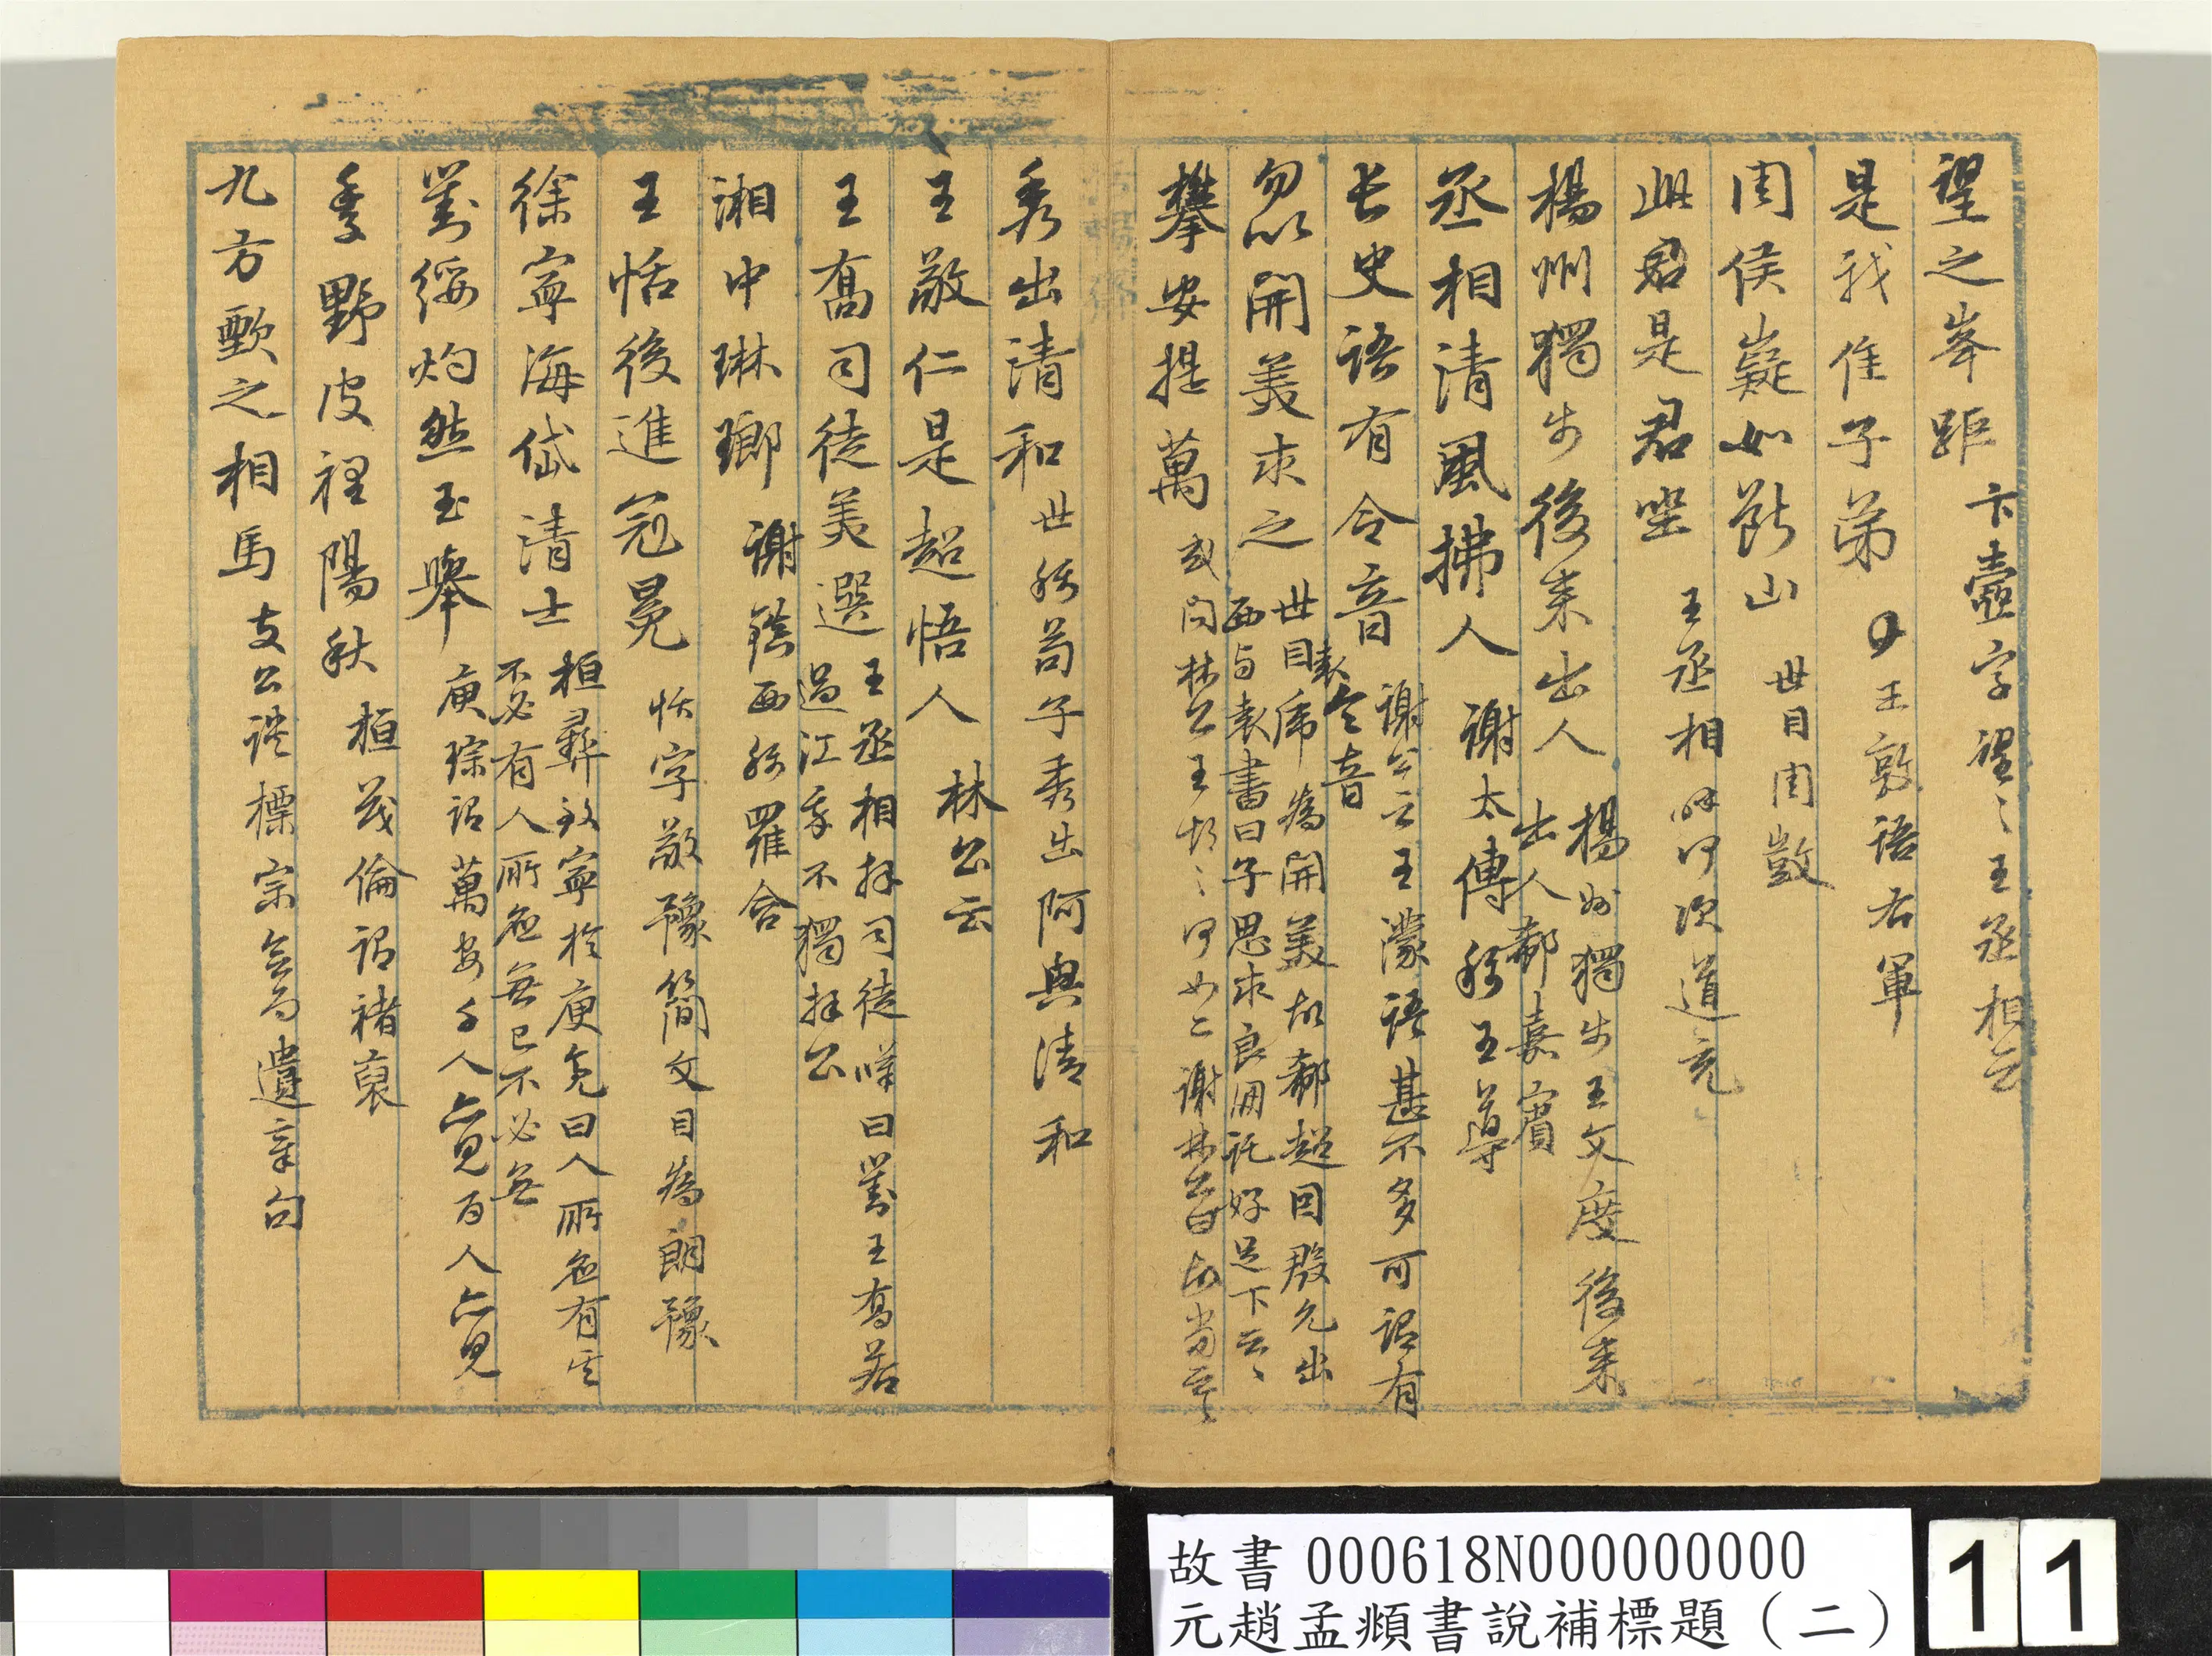 望之峯距 卞壼字望之王丞相云
是我隹子弟 王敦語右軍
周侯嶷如斷山 世目周顗
此君是君坐 王丞相呼何次道充
楊州獨步後来出人 楊州獨步王文度後来
出人郗嘉賓
丞相清風拂人 謝太傅稱王導
長史語有令音 謝公云王濛語甚不多可謂有
令音
勿以開美求之 世目袁席為開美故郗超目殷允出
西与袁書曰子思求良朋託好足下云云
攀安提萬 或問林公王何如二謝林公曰故當
秀出清和 世稱苟子秀出阿興清和
王敬仁是超悟人 林公云
王喬司徒美選 王丞相拜司徒嘆曰劉王喬若
過江我不獨拜公
湘中琳瑯 謝鎮西稱羅含
王恬後進冠冕 恬字敬豫簡文目為朗豫
徐寧海岱清士 桓彞致寧於庾亮曰人所應有
不必有人所應無己不必無
劉綏灼然玉舉 庾琮謂萬安千人亦見百人亦見
季野皮裡陽秋 桓茂倫謂褚裒
九方歅之相馬 支公談標宗會而遺章句
故書 000618N000000000
元趙孟頫書說補標題(二)
11